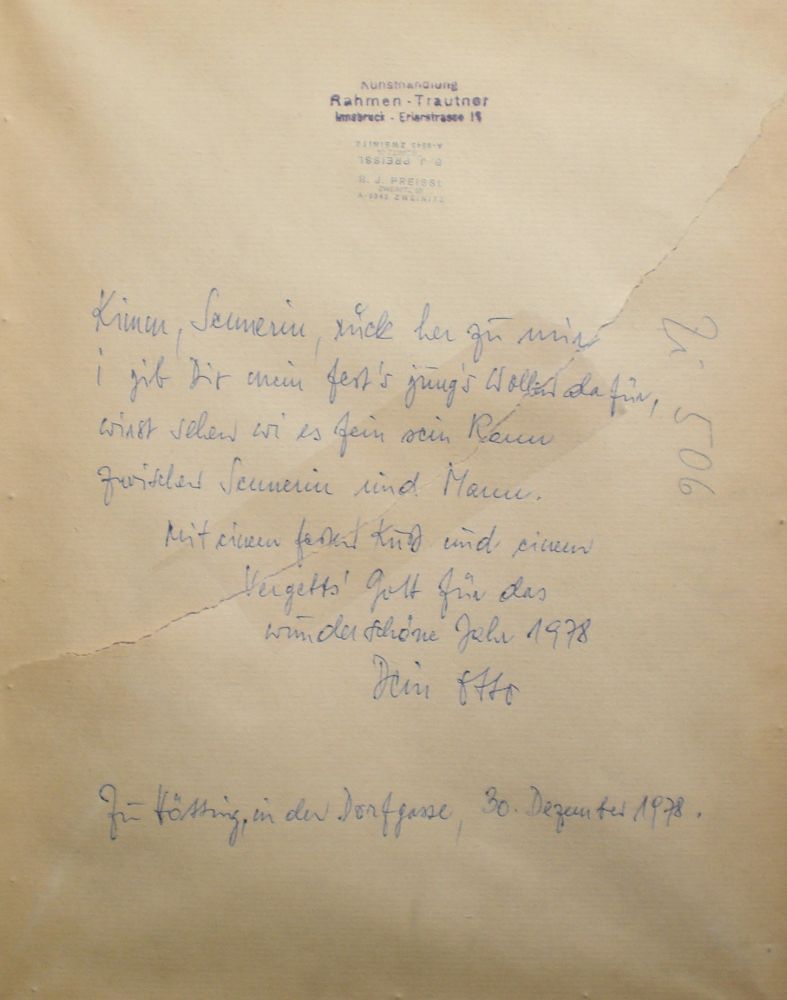 Kunsthandlung
Rahmen - Trautner
Innsbruck - Erlerstrasse 15
A-9343 ZWEINITZ
B. J. PREISSL
B. J. PREISSL
A-9343 ZWEINITZ
Kimm, Sennerin, rück her zu mir
i gib Dir mein fest's jung's Wollen dafür,
wirst sehen wi es fein sein kann
zwischen Sennerin und Mann.
Mit einem festen Kuß und einem
Vergelts' Gott für das
wunderschöne Jahr 1978
Dein Otto
Zu Hötting, in der Dorfgasse, 30. Dezember 1978.
506